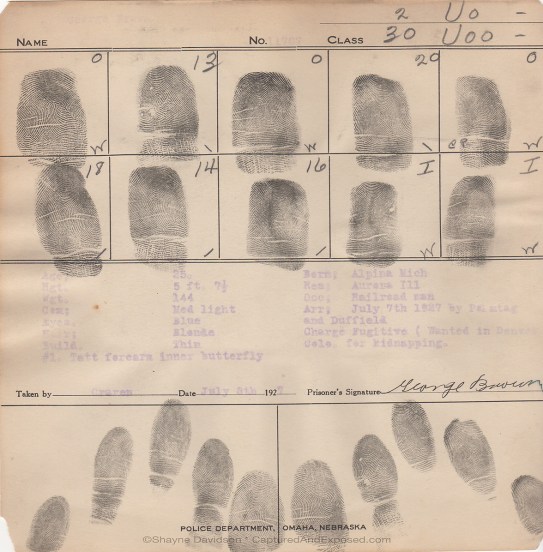 2 Uo -
NAME No. CLASS 30 Uoo -
0 13 0 20 0
W \ W \ W
18 14 16 I I
/ / / W W
Age; 25. Born; Alpina Mich
Hgt. 5 ft. 7½ Res; Aurena Ill
Wgt. 144 Occ; Railroad man
Com; Med light Arr; July 7th 1927 by
Eyes. Blue and Duffield
Blonde Charge Fugitive ( Wanted in
Build. Thin for kidnapping.
#1. Tatt forearm inner butterfly
Taken by Date July 8th 192 7 Prisoner's Signature George Brown
POLICE DEPARTMENT, OMAHA, NEBRASKA
©Shayne Davidson * CapturedAndExposed.com